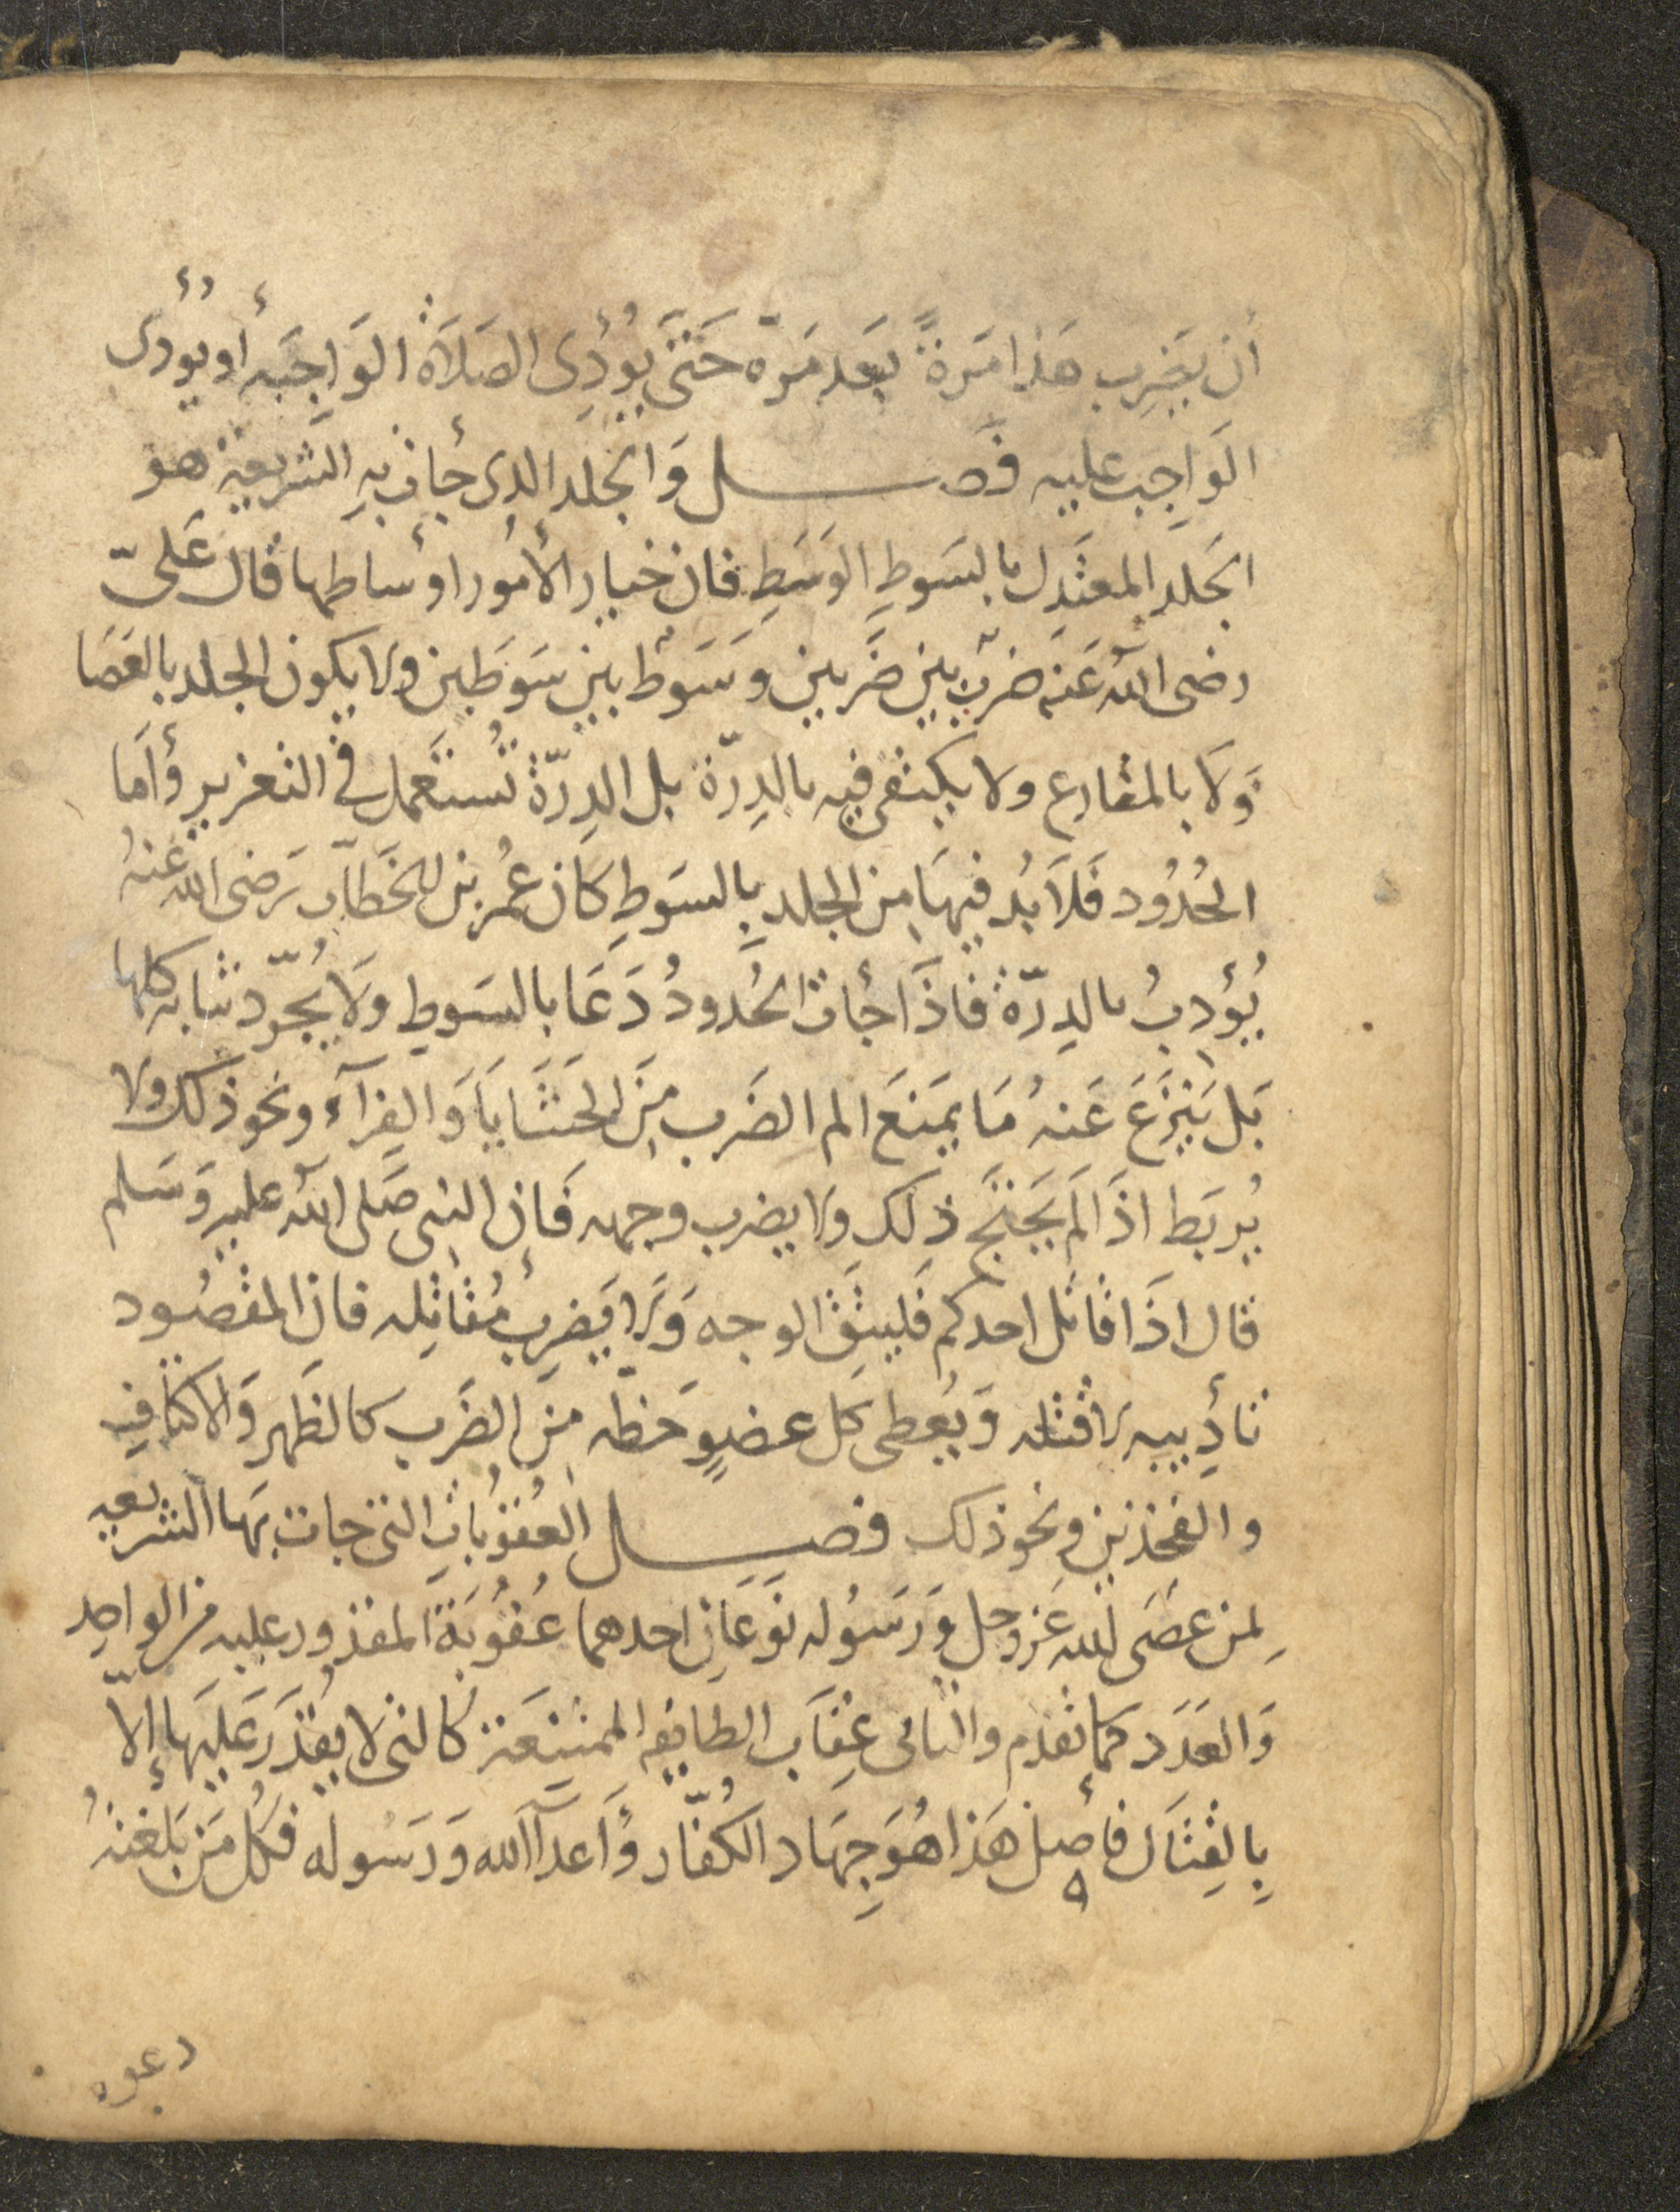 أن يضرب هَذا مَرةً بعَد مَرّة حَتى يُؤدِى الصَلاَة الوَاجِبَه أو يؤدى
الوَاجِب عليه فَصــل وَالجَلد الذى جأت بهِ الشريعة هو
الجَلد المعتَدِل بالسَوطِ الوَسَطِ فان خيار الأمُور أوساطها قال عَلىّ
رضى الله عَنه ضربٌ بين ضَربين وسَوطٌ بين سَوطَين ولا يكون الجلد بالعَصَا
وَلاَ بالمقارع ولا يكتفى فيه بالدِرّة بل الدِرّة تُستَعمل فى التعزير وَأمَا
الحُدُود فَلاَ بُد فيهَا من الجلد بالسَوطِ كان عُمر بن الخَطاّب رَضى الله عَنهُ
يُؤدِبُ بالدِرّة فاذَا جأت الحُدودُ دَعَا بالسَوطِ ولاَ يُجَرّد ثيابه كلها
بَل يَنزعَ عَنهُ مَا يمَنعَ الم الضَرب مِنَ الحَشَايَا وَالفِرَآء ونحو ذلك ولا
يُربَط اذَا لَم يَحتَج ذلك ولا يضرب وجهه فَان النبى صَلى الله عليه وَسَلم
قال اذَا قاتل احدكم فَليتَّق الوجه وَلا يَضرِبُ مُقَاتِله فان المقصُود
تأدِيبه لا قتله وَيُعطى كل عضوٍ حَظّه مِنَ الضَرب كالظَهر وَالاكتافِ
والفَخذين ونحو ذلك فصــل العُقُوبَاتِ التى جات بهَا الشريعه
لِمن عصَى الله عَز وجل وَرَسُوله نَوعَانِ احدهما عُقُوبَة المقدور عليه من الواحِد
وَالعَدَد كما تقدم والثانى عِقَاب الطايفه الممتنِعَة كالتى لا يُقدَر عَلَيهَا إلاّ
بِالقِتَال فأصل هَذا هُوَ جِهَاد الكُفّار وَأعدآ الله وَرَسُوله فكُل مَن بَلغتهُ
دعوه